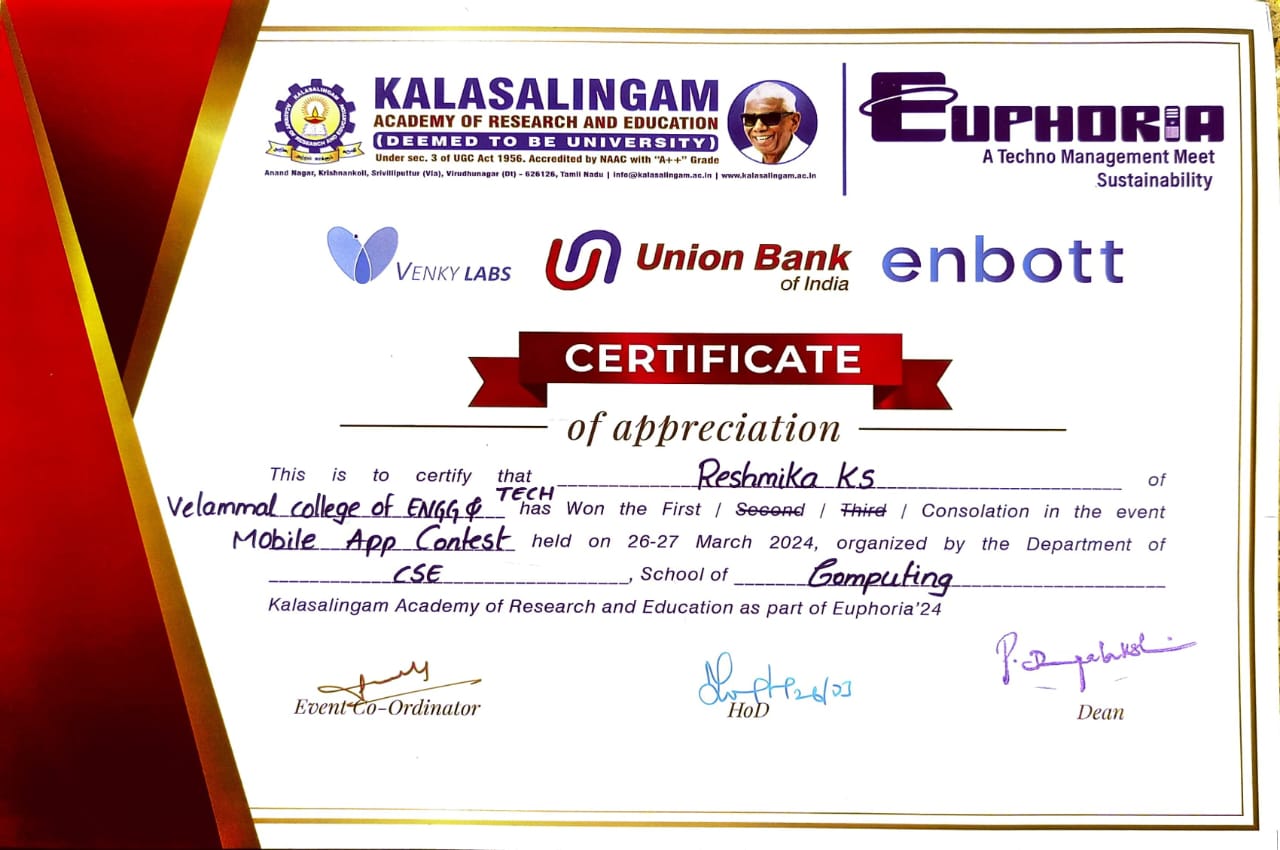 KALASALINGAM
ACADEMY OF RESEARCH AND EDUCATION
(DEEMED TO BE UNIVERSITY)
Under sec. 3 of UGC Act 1956. Accredited by NAAC with "A++" Grade
Anand Nagar, Krishnankoil, Srivilliputtur (Via), Virudhunagar (Dt) - 626126, Tamil Nadu | info@kalasalingam.ac.in | www.kalasalingam.ac.in
EUPHORIA
A Techno Management Meet
Sustainability
VENKY LABS
Union Bank
of India
enbott
CERTIFICATE
of appreciation
This is to certify that Reshmika K.S of
Velammal college of ENGG & TECH has Won the First / Second / Third / Consolation in the event
Mobile App Contest held on 26-27 March 2024, organized by the Department of
CSE, School of Computing
Kalasalingam Academy of Research and Education as part of Euphoria'24
Event Co-Ordinator
HoD
Dean